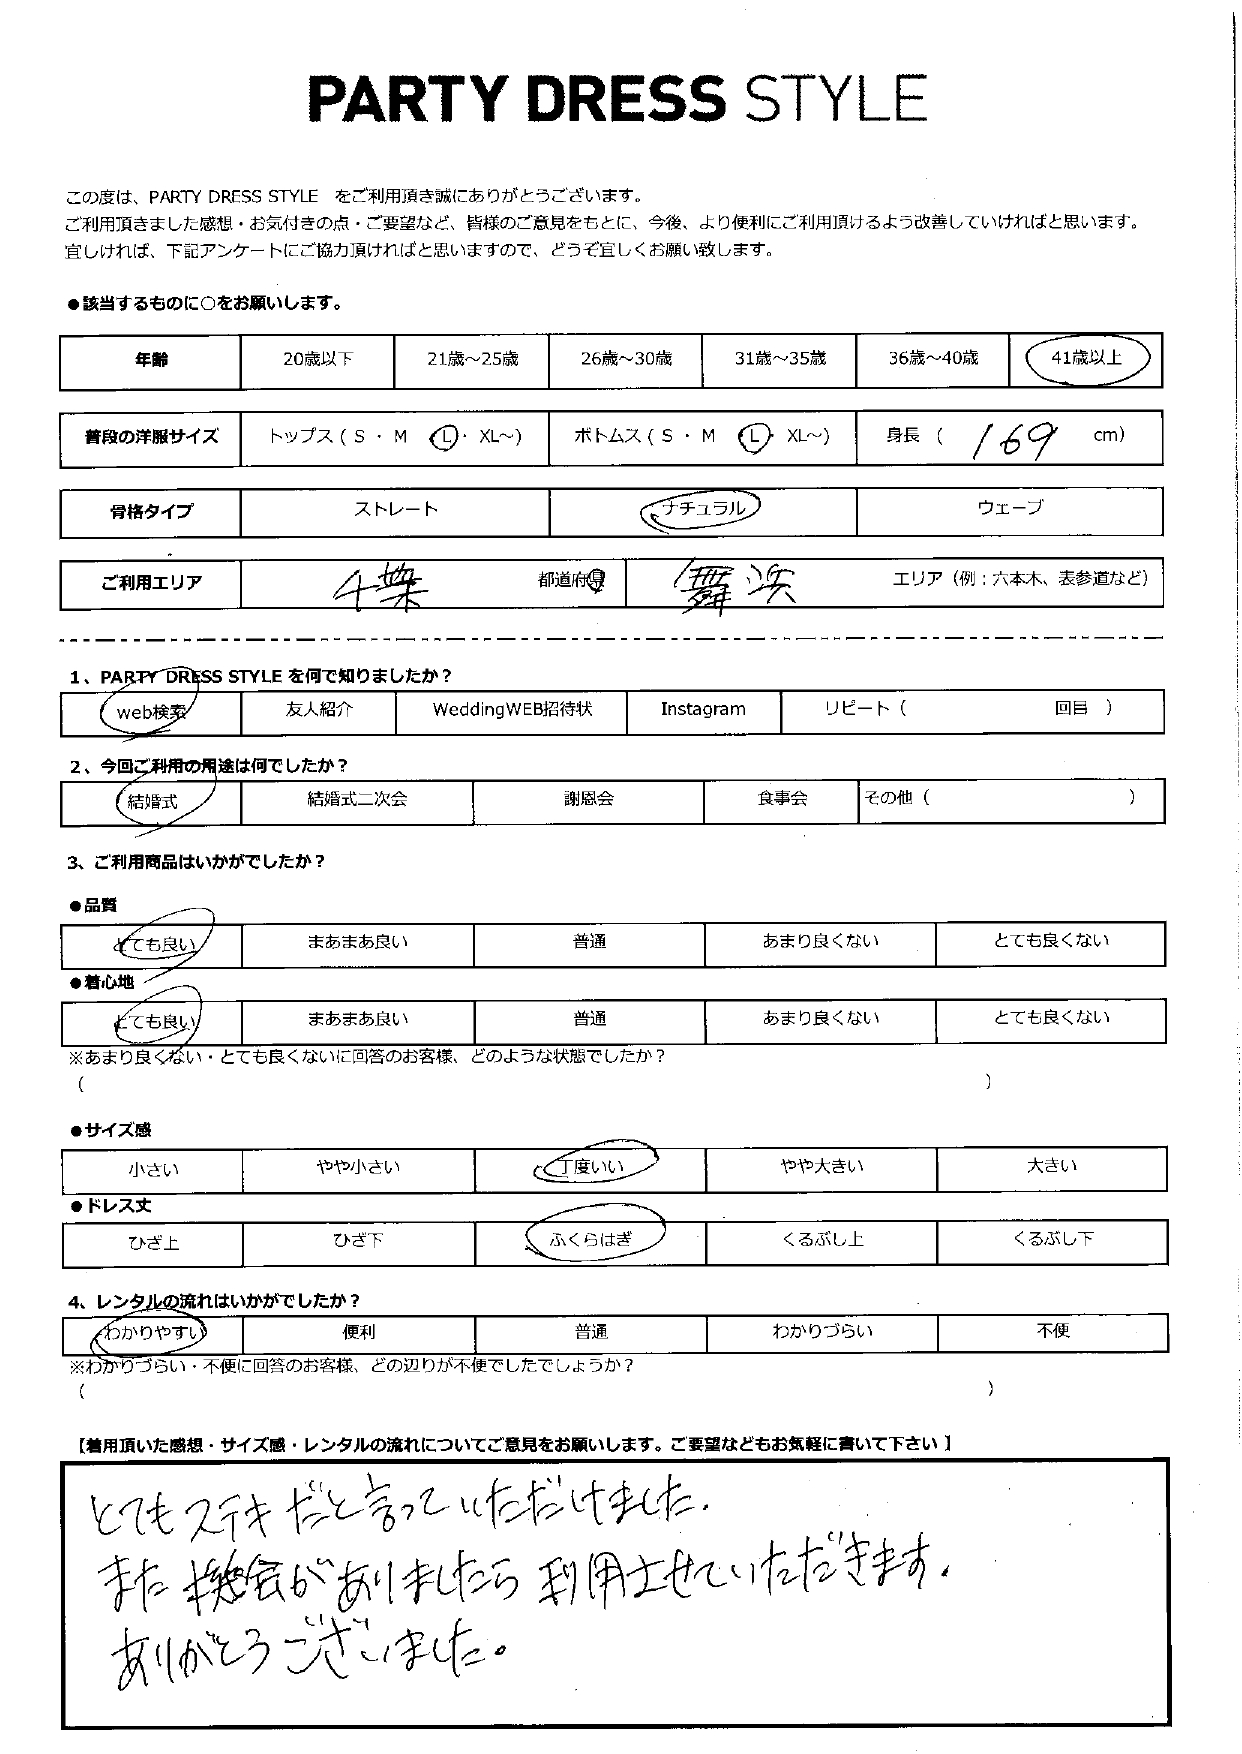 PARTY DRESS STYLE
この度は、PARTY DRESS STYLE をご利用頂き誠にありがとうございます。
ご利用頂きました感想・お気付きの点・ご要望など、皆様のご意見をもとに、今後、より便利にご利用頂けるよう改善していければと思います。
宜しければ、下記アンケートにご協力頂ければと思いますので、どうぞ宜しくお願い致します。
●該当するものに○をお願いします。
年齢 20歳以下 21歳～25歳 26歳～30歳 31歳～35歳 36歳～40歳 41歳以上
普段の洋服サイズ トップス ( S ・ M L・ XL～) ボトムス ( S ・ M L・ XL～) 身長 ( 169 cm)
骨格タイプ ストレート ナチュラル ウェーブ
ご利用エリア 千葉 都道府県 舞浜 エリア（例：六本木、表参道など）
1、PARTY DRESS STYLE を何で知りましたか？
web検索 友人紹介 WeddingWEB招待状 Instagram リピート（ 回目 ）
2、今回ご利用の用途は何でしたか？
結婚式 結婚式二次会 謝恩会 食事会 その他（ ）
3、ご利用商品はいかがでしたか？
●品質
とても良い まあまあ良い 普通 あまり良くない とても良くない
●着心地
とても良い まあまあ良い 普通 あまり良くない とても良くない
※あまり良くない・とても良くないに回答のお客様、どのような状態でしたか？
（ ）
●サイズ感
小さい やや小さい 丁度いい やや大きい 大きい
●ドレス丈
ひざ上 ひざ下 ふくらはぎ くるぶし上 くるぶし下
4、レンタルの流れはいかがでしたか？
わかりやすい 便利 普通 わかりづらい 不便
※わかりづらい・不便に回答のお客様、どの辺りが不便でしたでしょうか？
（ ）
【着用頂いた感想・サイズ感・レンタルの流れについてご意見をお願いします。ご要望などもお気軽に書いて下さい 】
とてもステキだと言っていただけました.
また機会がありましたら利用させていただきます.
ありがとうございました。